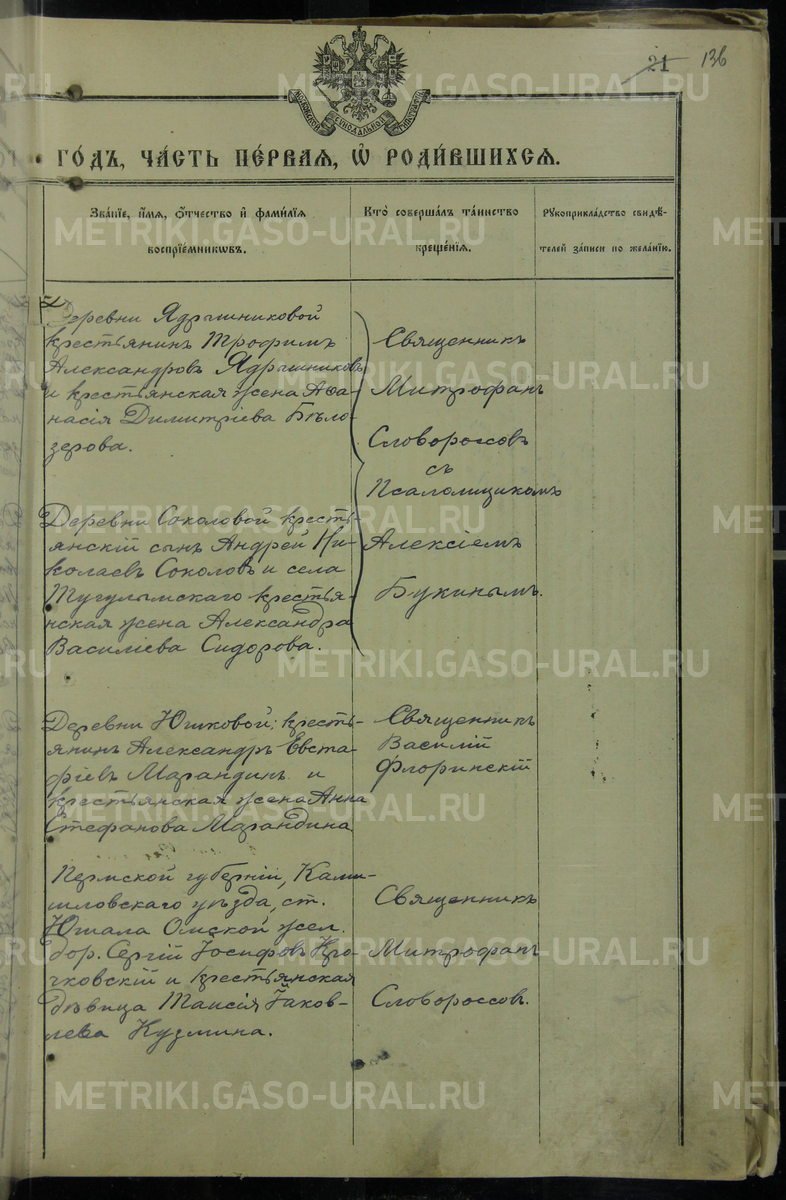 21 136
МОСКОВСКОЙ СѴНОДАЛЬНОЙ ТИПОГРАФІИ
ГО́ДЪ, ЧА́СТЬ ПЕ́РВАѦ, Ѽ РОДИ́ВШИХСѦ.
Зва́нїе, и҆́мѧ, ѻ҆́тчество и҆ фами́лїѧ
воспрїе́мникѡвъ.
Кто̀ соверша́лъ та́инство
креще́нїѧ.
Рꙋкоприкла́дство свидѣ́-
телей за́писи по жела́нїю.
Деревни Ядрышниковой
крестьянинъ Трофимъ
Александровъ Ядрышниковъ
и крестьянская жена Аѳа-
насія Димитріева Бѣло-
зерова.
Священникъ
Митрофанъ
Словороссовъ
съ
Псаломщикомъ
Алексіемъ
Букинымъ.
Деревни Соколовой кресть-
янскій сынъ Андрей Ни-
колаевъ Соколовъ и села
Тугулымскаго крестья-
нская жена Александра
Василіева Сидорова.
Деревни Юшковой; кресть-
янинъ Александръ Евста-
фіевъ Марандинъ и
крестьянская жена Анна
Стефанова Марандина
Священникъ
Василій
Флоринскій
Пермской губерніи, Камы-
шловскаго уѣзда, ст.
Юшала Омской жел.
дор. Сергій Іосифовъ
и крестьянская
дѣвица Таисія Іаков-
лева Кузмина.
Священникъ
Митрофанъ
Словороссовъ.
METRIKI.GASO-URAL.RU